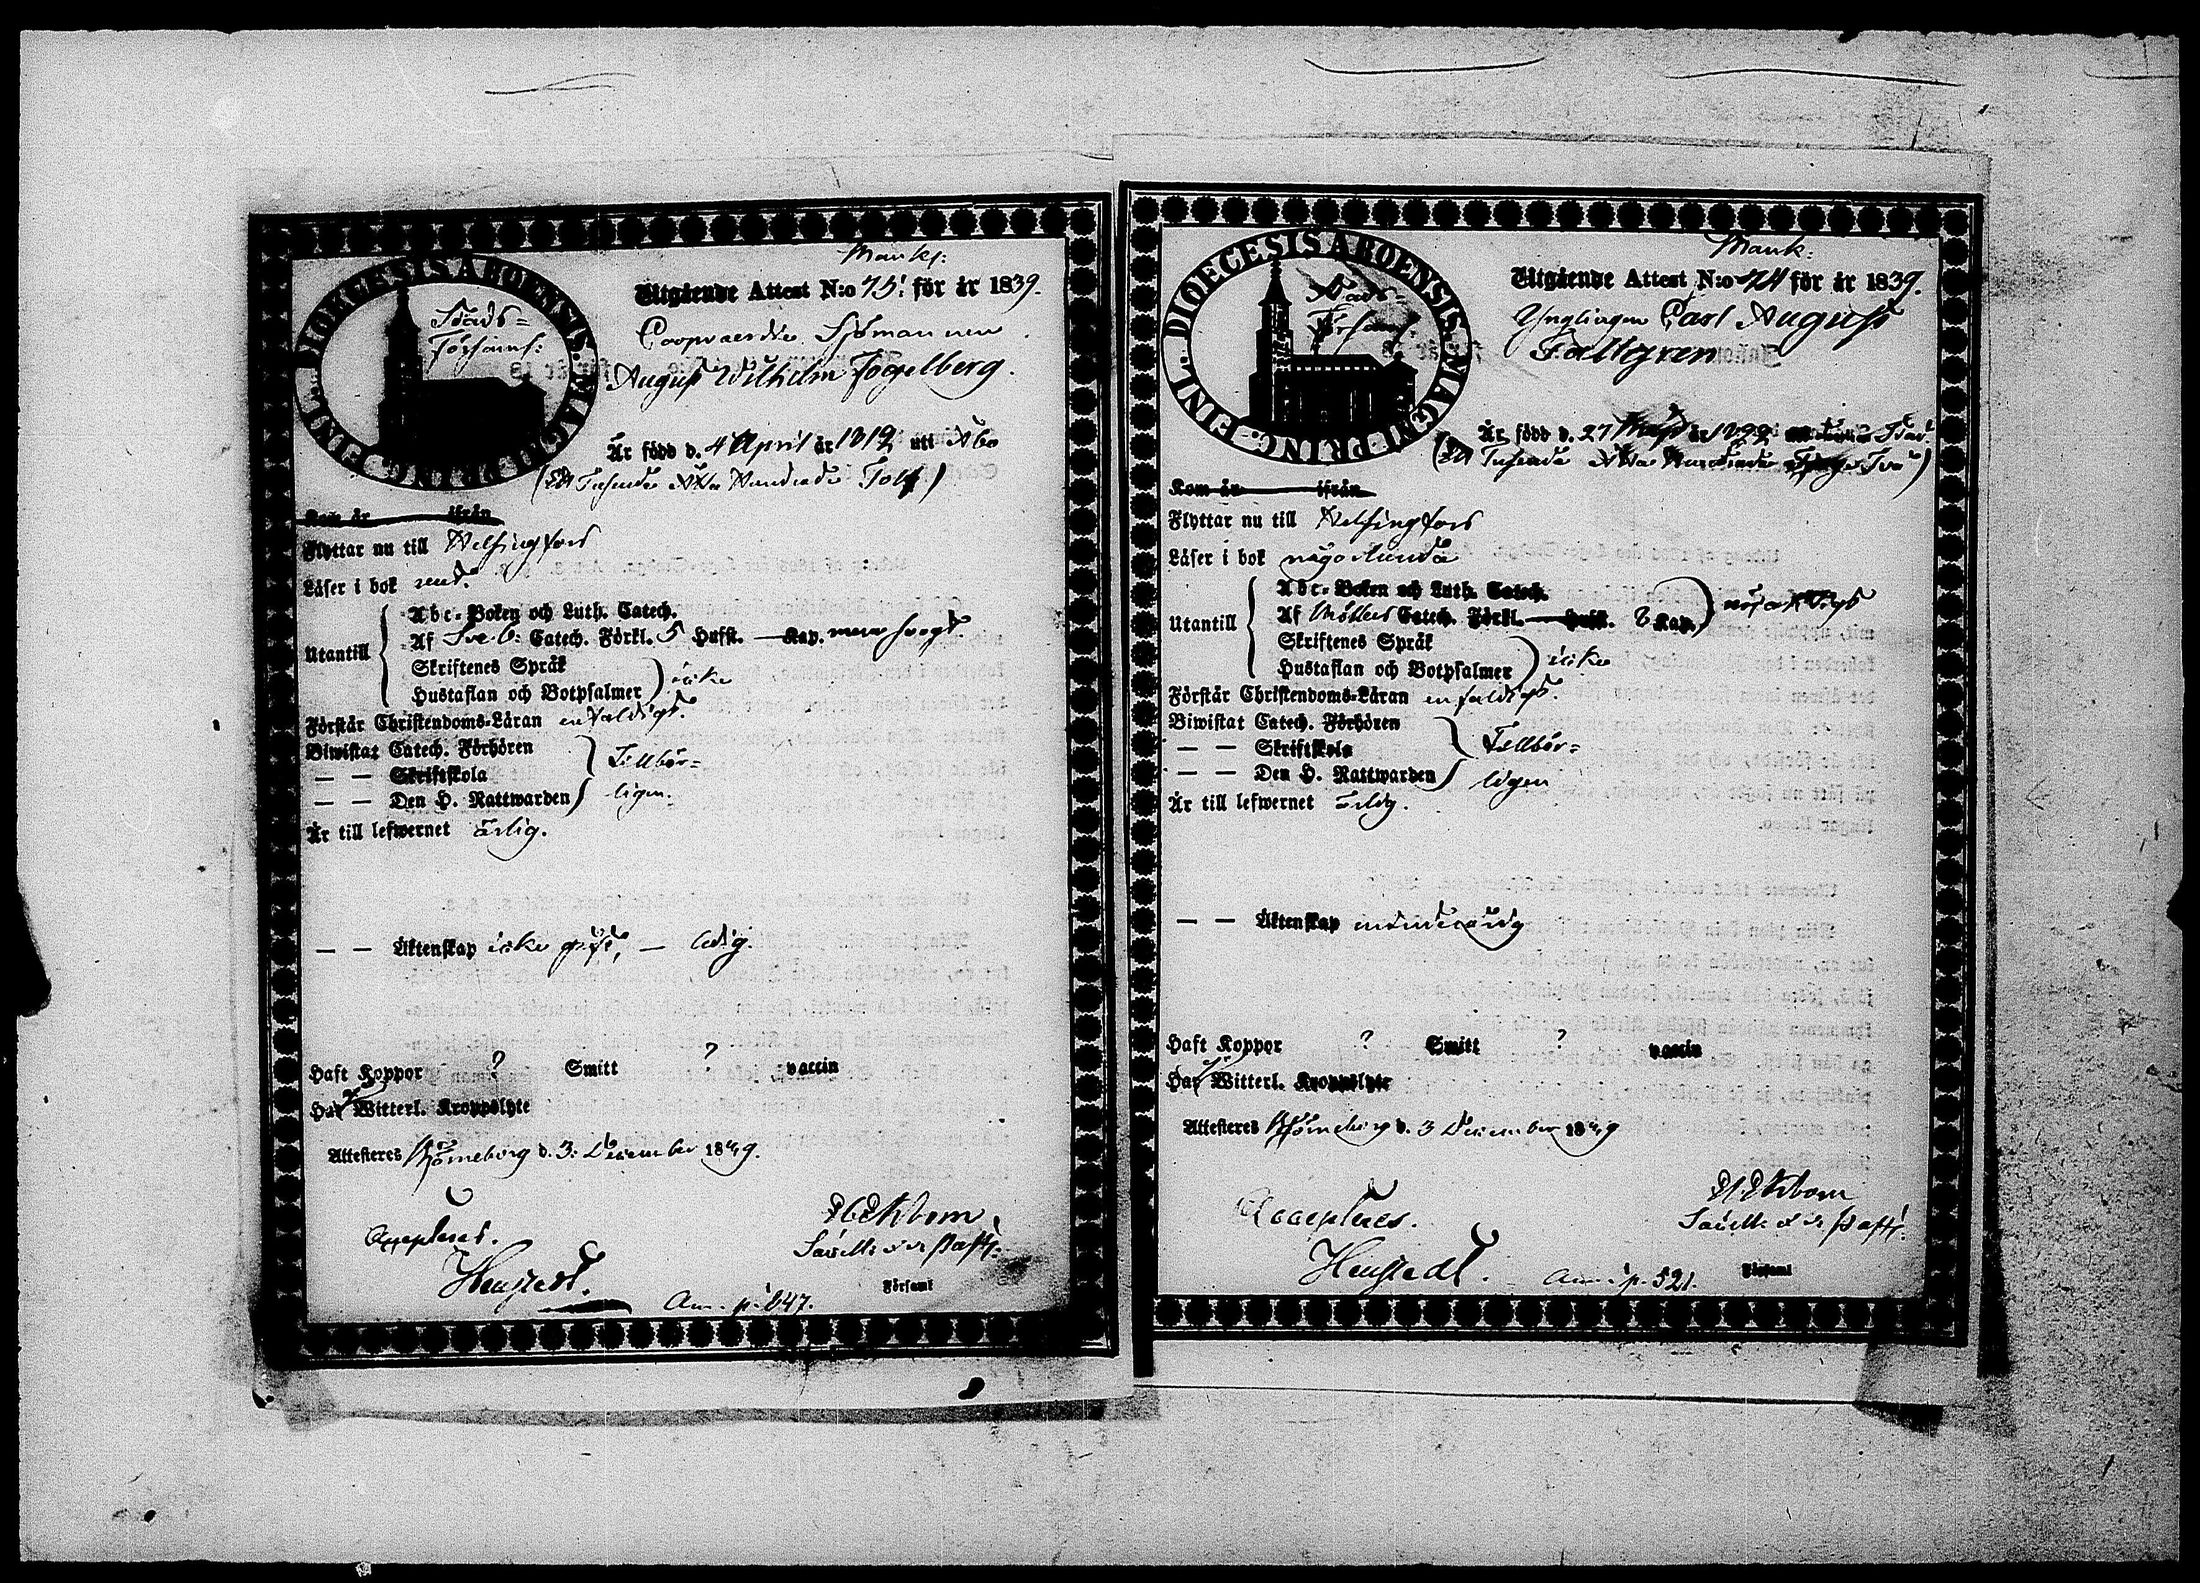 Manks:
DIOECESIS ABOENSIS. MAGNI PRINC. FINL.
Stads=
Församl:
Utgående Attest N:o 75. för år 1839.
Coopvaerdie Sjömannen
August Wilhelm Fogelberg.
Är född d. 4 April år 1812 uti Åbo
(Ett Tusende Åtta Hundrade Tolf)
Kom år ifrån
Flyttar nu till Helsingfors
Läser i bok rent.
Utantill
Abc-Boken och Luth. Catech.
Af Sveb: Catech. Förkl. 5 Hufst. — Kap. mera svagt.
Skriftenes Språk
Hustaflan och Botpsalmer icke
Förstår Christendoms-Läran enfaldigt.
Biwistat Catech. Förhören
— — Skriftskola Tillbör=
— — Den H. Nattwarden ligen.
Är till lefwernet ärlig.
— — Äktenskap icke gift, — ledig.
Haft Koppor ? Smitt ? vaccin
Har Witterl. Kroppslyte
Attesteres Björneborg d. 3. December 1839.
Accepteras.
Ekbom
Henstedt.
Församl
Ann. p. 647.
Mank:
DIOECESIS ABOENSIS. MAGNI PRINC. FINL.
Stads=
Församl:
Utgående Attest N:o 74 för år 1839.
Ynglingen Carl August
Faltgren
Är född d. 27 år 1822
(Ett Tusende Åtta Hundrade Tjugu Två)
Kom år ifrån
Flyttar nu till Helsingfors
Läser i bok någorlunda
Utantill
Abc-Boken och Luth. Catech.
Af Möllers Catech. Förkl. — Hufst. 3 Kap.
Skriftenes Språk
Hustaflan och Botpsalmer icke
Förstår Christendoms-Läran enfaldigt.
Biwistat Catech. Förhören
— — Skriftskola Tillbör=
— — Den H. Nattwarden ligen
Är till lefwernet ärlig.
— — Äktenskap minderårig
Haft Koppor ? Smitt ? vaccin
Har Witterl. Kroppslyte
Attesteres Björneborg d. 3 December 1839
Accepteras.
Ekbom
Henstedt.
Församl
Ann. p. 521.